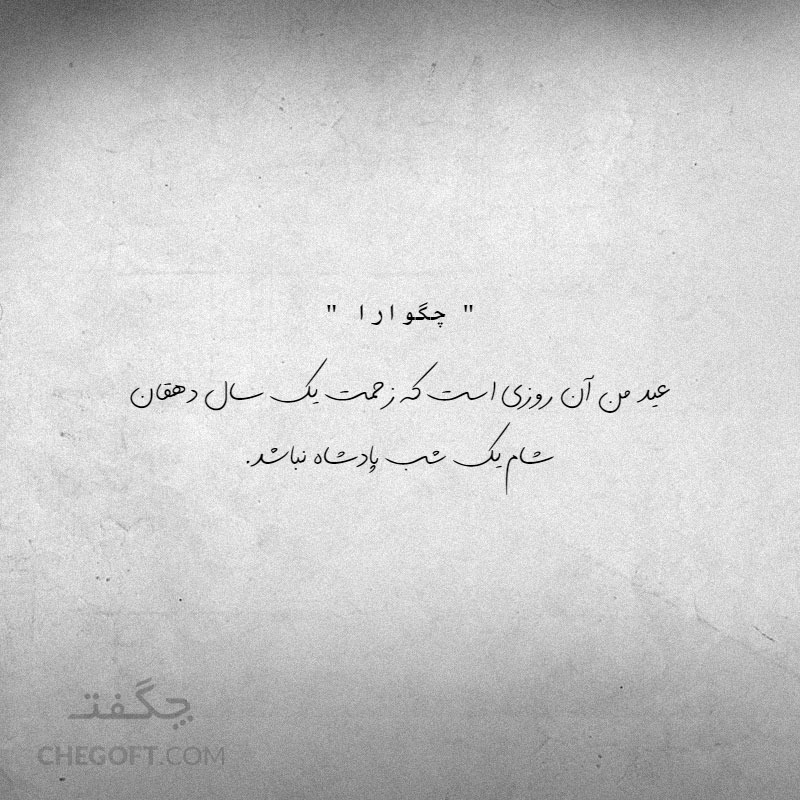 " چگوارا "
عید من آن روزی است که زحمت یک سال دهقان
شام یک شب پادشاه نباشد.
چگفت
CHEGOFT.COM